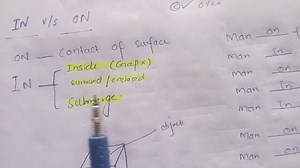 IN v/s ON
over
ON — Contact of Surface
IN
Inside (Grap x)
surround/enclosed
Submerge
object
Man on
Man in
Man on
Man in
Man on
Man in